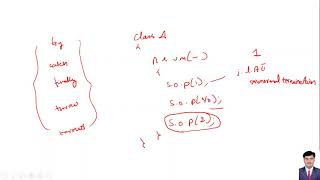 try
catch
finally
throw
throws
class A
{
p s v m(—)
{
S.O.P(1);
S.O.P(1/0);
S.O.P(2);
}
}
1
: AE
abnormal termination